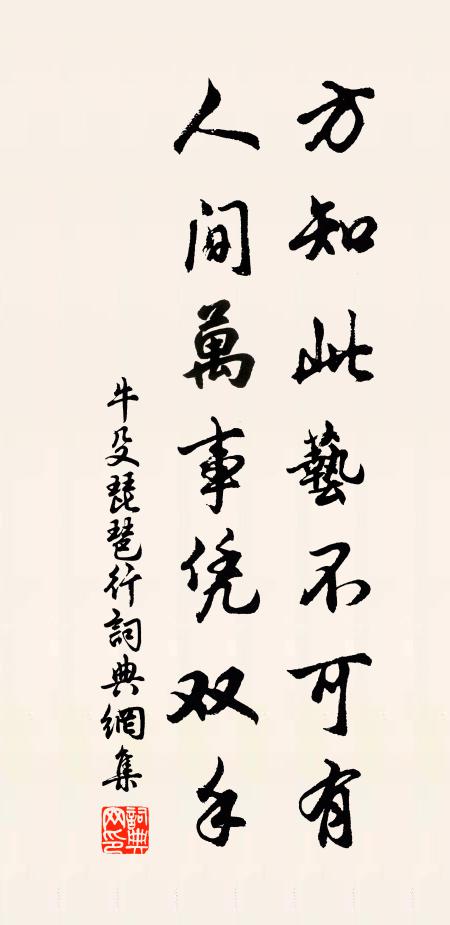 方知此藝不可有
人间萬事凭双手
牛殳琵琶行詞典網集
詞典網印